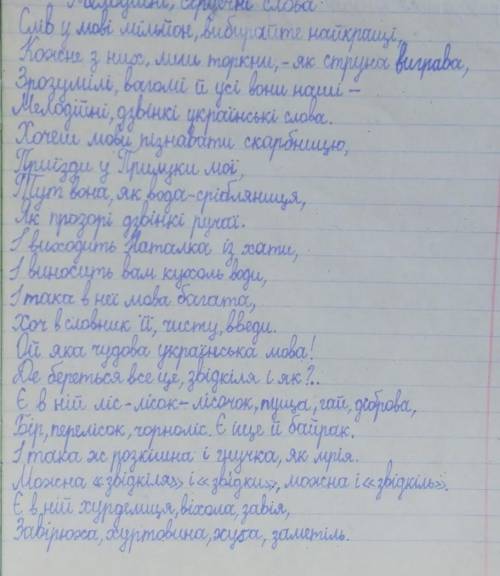 Мелодійні, сердечні слова
Слів у мові мільйон, вибирайте найкращі,
Кожне з них, лиш торкни, - як струна виграва,
Зрозумілі, вагомі й усі вони наші –
Мелодійні, дзвінкі українські слова.
Хочеш мови пізнавати скарбницю,
Приїзди у Прилуки мої,
Тут вона, як вода-срібляниця,
Як прозорі дзвінкі ручаї.
І виходить Наталка із хати,
І виносить вам кухоль води,
І така в неї мова багата,
Хоч в словник її, чисту, введи.
Ой яка чудова українська мова!
Де береться все це, звідкіля і як?..
Є в ній ліс-лісок-лісочок, пуща, гай, діброва,
Бір, перелісок, чорноліс. Є іще й байрак.
І така ж розкішна і гнучка, як мрія.
Можна «звідкіля» і «звідки», можна і «звідкіль».
Є в ній хурделиця, віхола, завія,
Завірюха, хуртовина, хуга, заметіль.